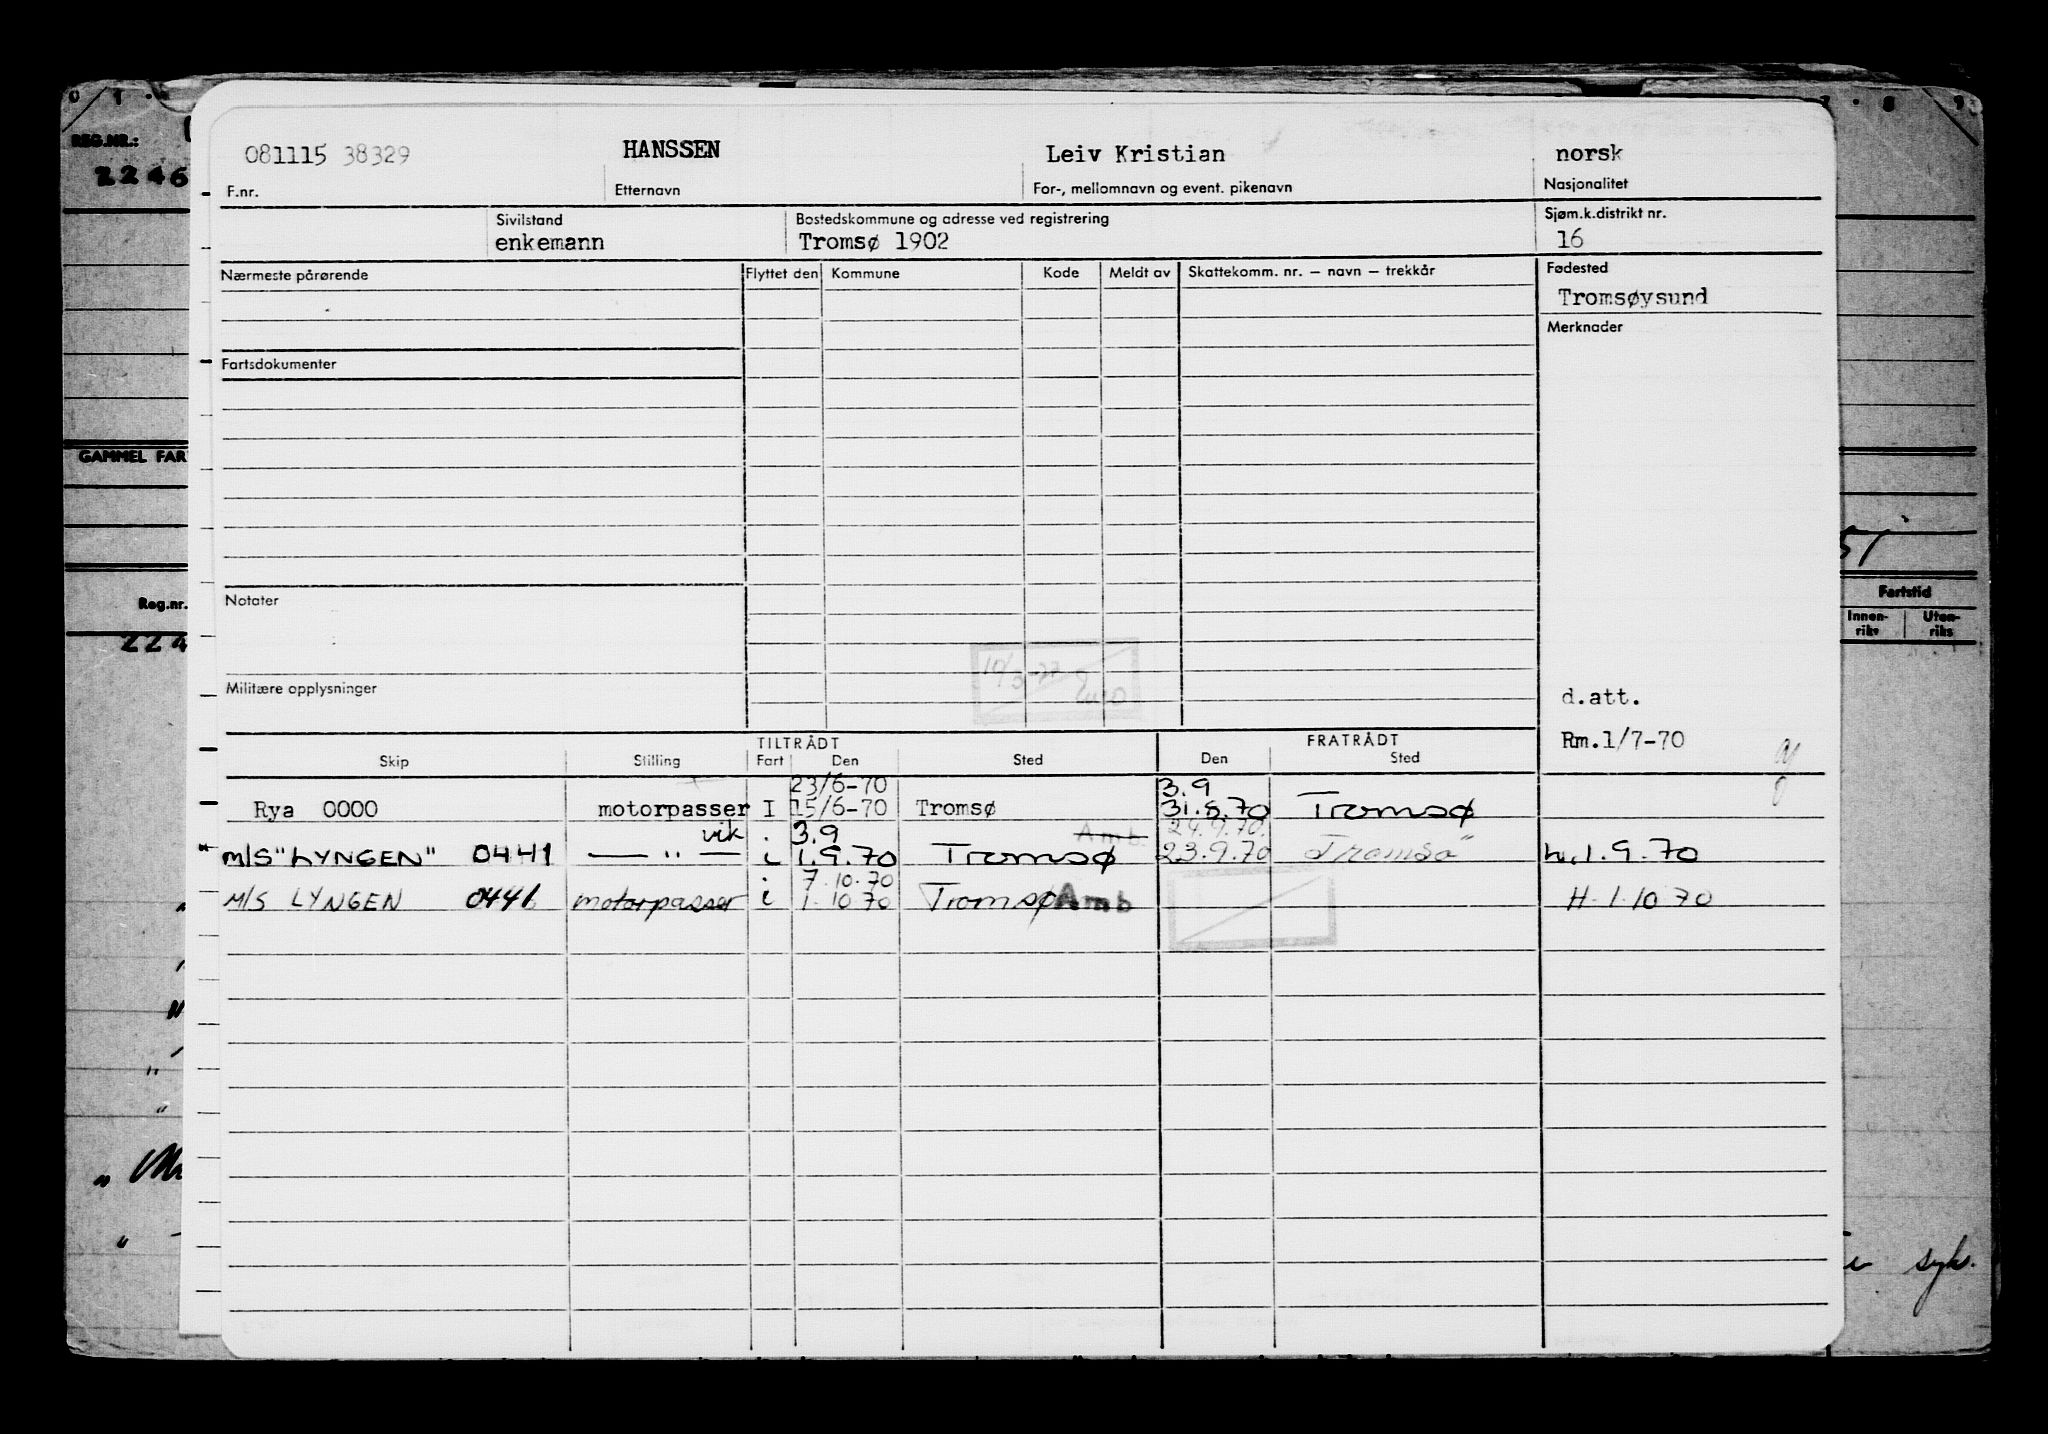 REG.NR.:
2246
081115 38329 HANSSEN Leiv Kristian norsk
F.nr. Etternavn For-, mellomnavn og event. pikenavn Nasjonalitet
Sivilstand Bostedskommune og adresse ved registrering Sjøm.k.distrikt nr.
enkemann Tromsø 1902 16
Nærmeste pårørende Flyttet den Kommune Kode Meldt av Skattekomm. nr. – navn – trekkår Fødested
Tromsøysund
Merknader
Fartsdokumenter
GAMMEL FAR
Fartstid
Reg.nr. Notater
Innen-riks Uten-riks
224
Militære opplysninger
d.att.
Rm.1/7-70
TILTRÅDT FRATRÅDT
Skip Stilling Fart Den Sted Den Sted
23/6-70 3.9
Rya 0000 motorpasser I 15/6-70 Tromsø 31.8.70 Tromsø
vik. 3.9 Amb. 24.9.70.
M/S "LYNGEN" 0441 — " — i 1.9.70 Tromsø 23.9.70 Tromsø h.1.9.70
7.10.70
M/S LYNGEN 0441 motorpasser i 1.10 70 Tromsø Amb H.1.10 70
syk.